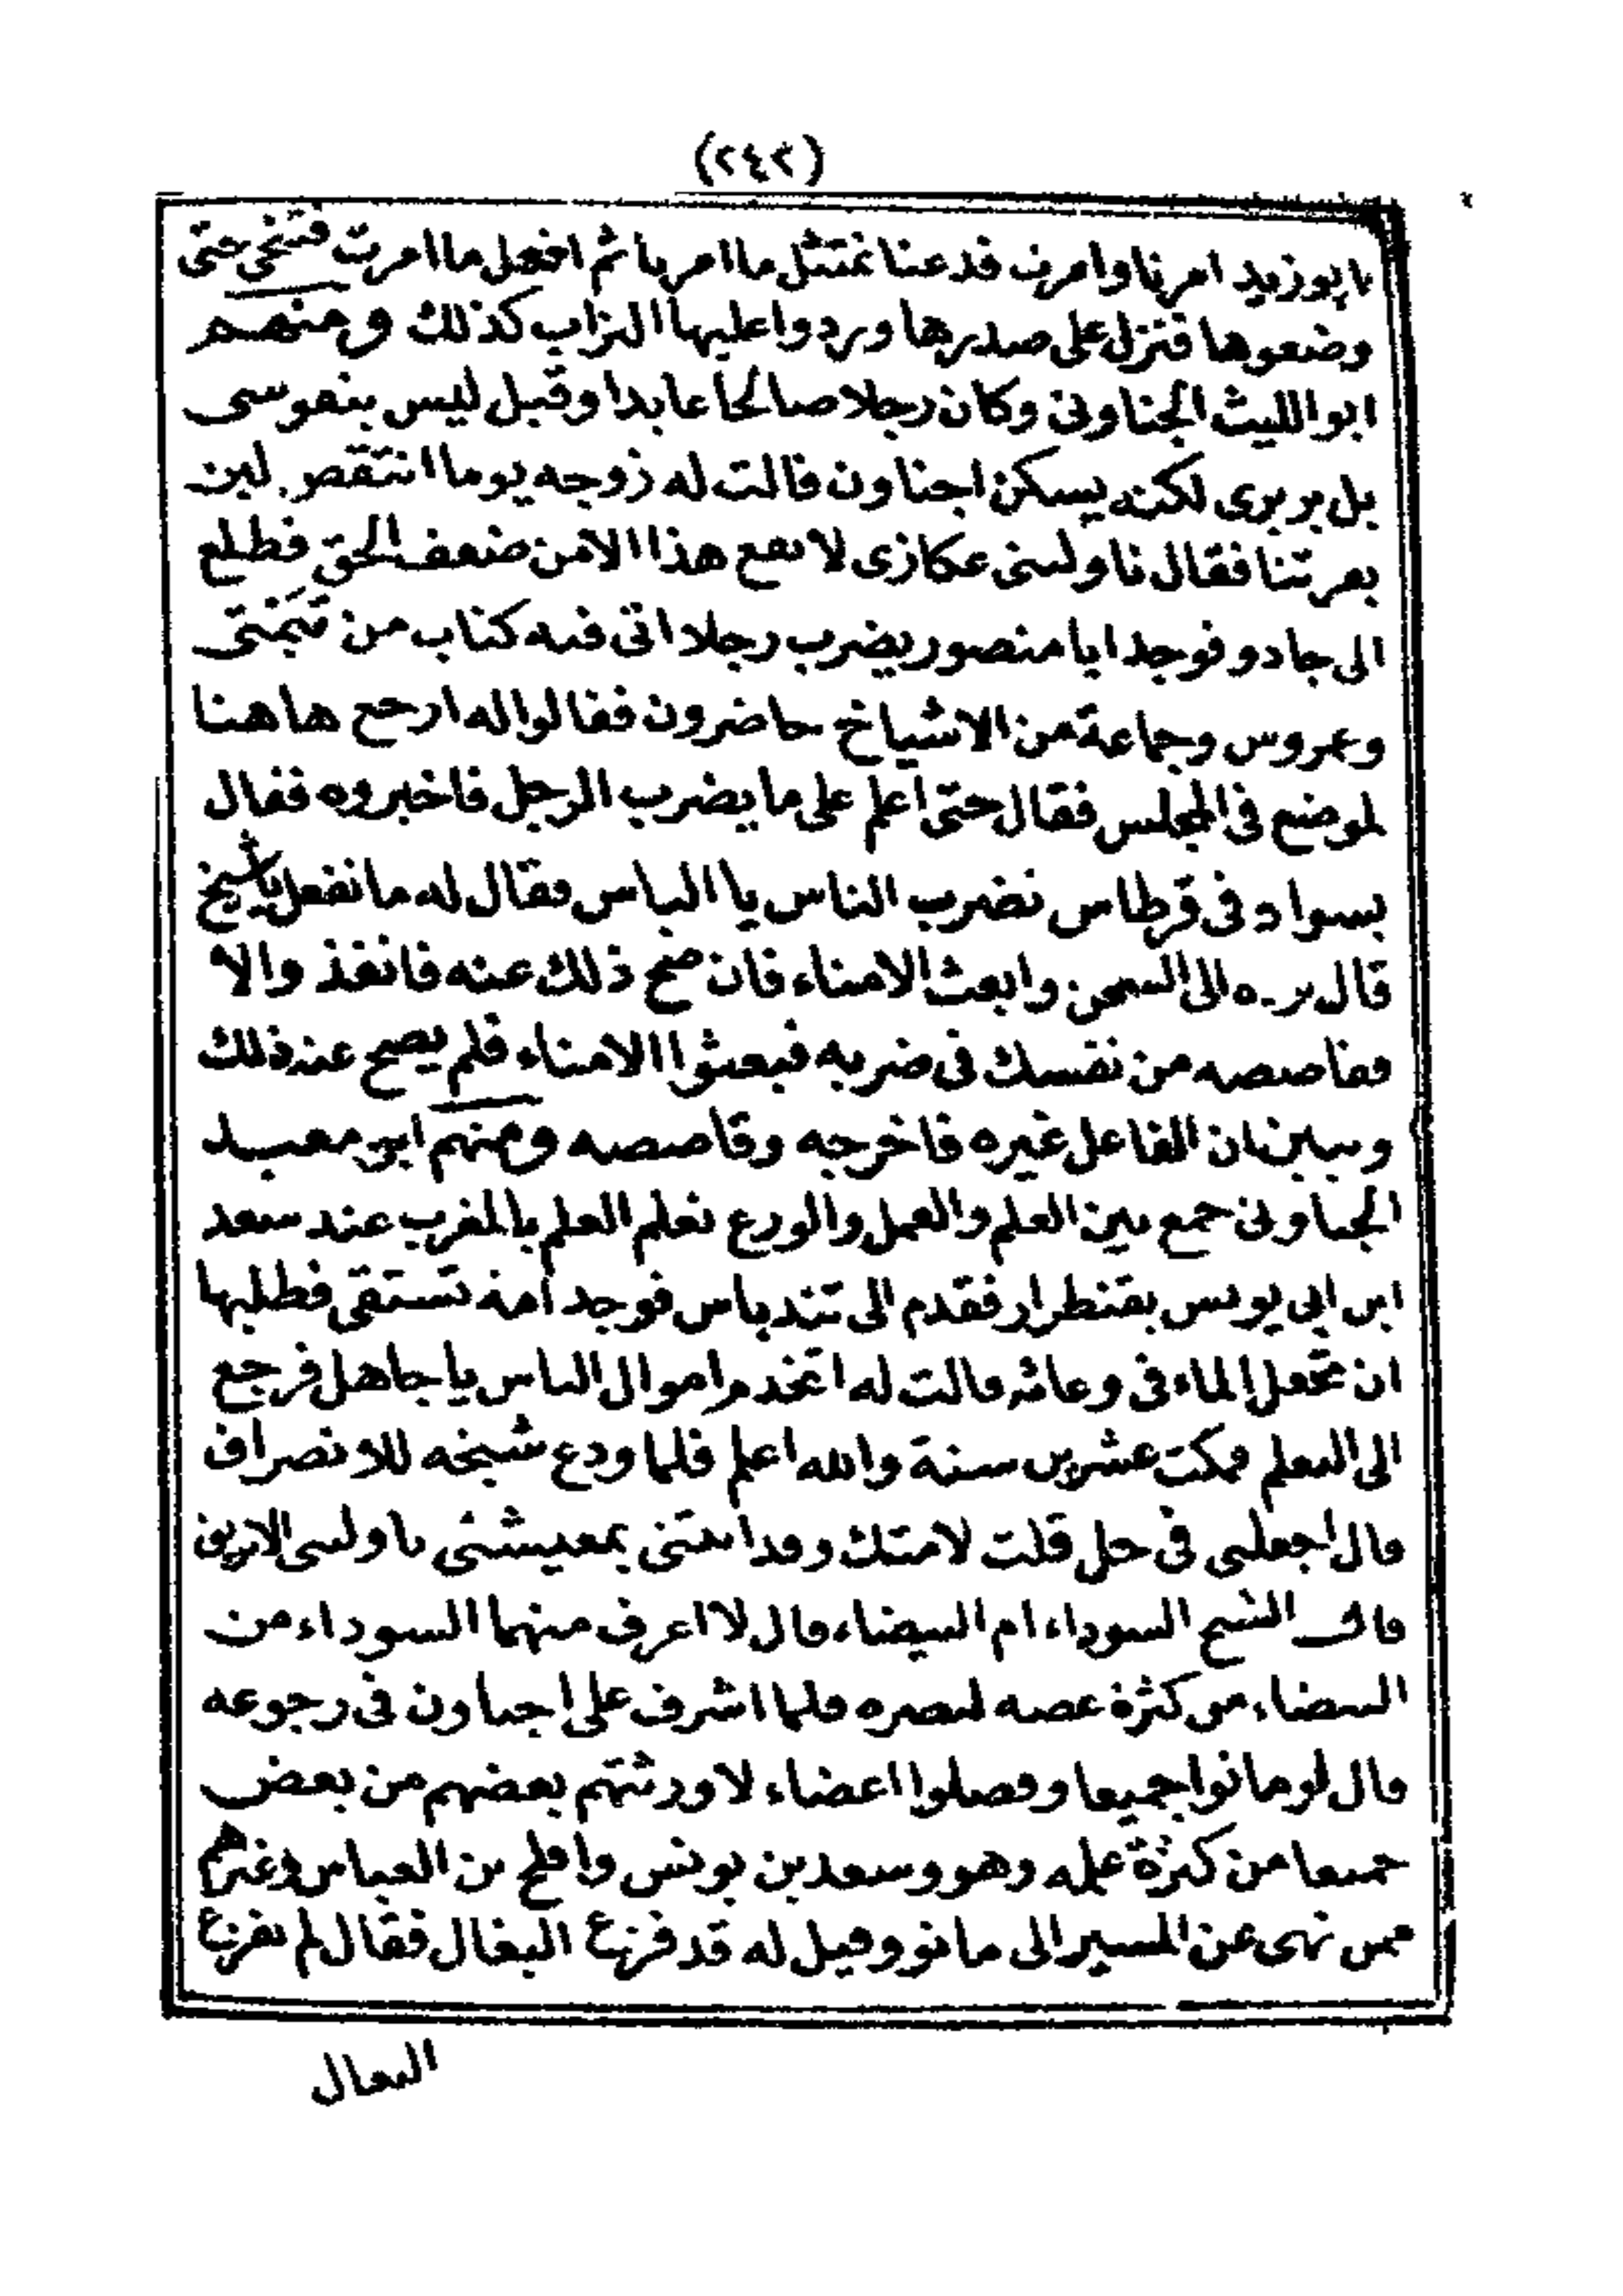 (٢٤٢)
يابوزيد امرنا وامرت فدعنا نمتثل ما امرنا ثم افعل ما امرت فتنحى حتى
وضعوها فنزل على صدرها وردوا عليها التراب كذلك ومنهم
ابو الليث الجناونى وكان رجلا صالحا عابدا وقيل ليس بنفوسى
بل بربرى لكنه يسكن اجناون قالت له زوجه يوما انتقص لبن
بعرتنا فقال ناولينى عكازى لا يقع هذا الا من ضعف الحق فطلع
الى جادو فوجد ابا منصور يضرب رجلا اتى فيه كتاب من تيمتى
وعمروس وجماعة من الاشياخ حاضرون فقالوا له ارجع هاهنا
لموضع فى المجلس فقال حتى اعلم على ما يضرب الرجل فاخبروه فقال
بسواد فى قرطاس تضرب الناس يا الياس فقال له ما نفعل يا شيخ
قال يرده الى السجن وابعث الامناء فان صح ذلك عنه فانفذ والا
فقاصصه من نفسك فى ضربه فبعثوا الامناء فلم يصح عند ذلك
وتبين ان الفاعل غيره فاخرجه وقاصصه ومنهم ابو معبد
الجناونى جمع بين العلم والعمل والورع تعلم العلم بالمغرب عند سعد
ابن ابى يونس بقنطرار فقدم الى تندباس فوجد امة تستقى فطلبها
ان تجعل الماء فى وعائه قالت له اتخدم اموال الناس يا جاهل فرجع
الى التعلم فمكث عشرين سنة والله اعلم فلما ودع شيخه للانصراف
قال اجعلنى فى حل قلت لامتك وقد اتتنى بمعيشتى ناولينى الابريق
قال الشيخ السوداء ام البيضاء قال لا اعرف منهما السوداء من
البيضاء من كثرة غضه لبصره فلما اشرف على اجناون فى رجوعه
قال لو ماتوا جميعا وفصلوا اعضاء لاورثتهم بعضهم من بعض
جميعا من كثرة علمه وهو وسعد بن يونس وافلح بن العباس وغيرهم
ممن نهى عن المسير الى مانو وقيل له قد فزع البغال فقال لم تفزع
البغال